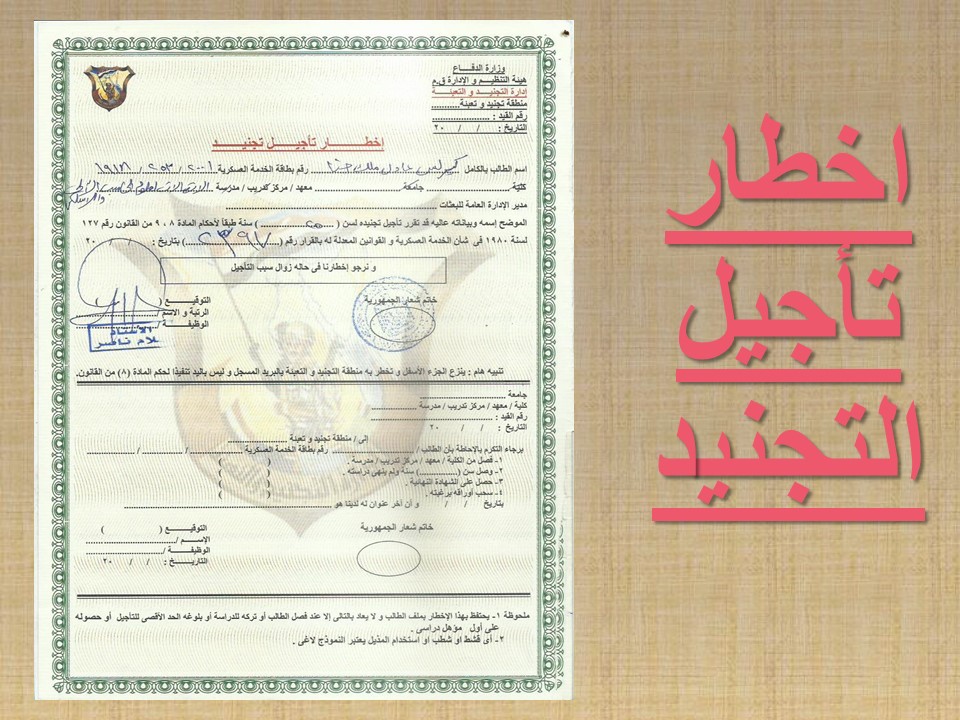 وزارة الدفـــاع
هيئة التنظيـــم و الإدارة ق.م
إدارة التجنيـــد و التعبئـــة
منطقة تجنيد و تعبئة...........
رقم القيد : ......................
التاريخ : / / ٢٠
إخطـــــــار تأجيـــــل تجنيـــــد
اسم الطالب بالكامل / كيرلس عادل ملاك رقم بطاقة الخدمة العسكرية
كلية: جامعة: معهد / مركز تدريب / مدرسة
مدير الإدارة العامة للبعثات
الموضح إسمه وبياناته عاليه قد تقرر تأجيل تجنيده لسن ( ) سنة طبقاً لأحكام المادة ٨ ، ٩ من القانون رقم ١٢٧
لسنة ١٩٨٠ فى شأن الخدمة العسكرية و القوانين المعدلة له بالقرار رقم ( ) بتاريخ : / / ٢٠
و نرجو إخطارنا فى حاله زوال سبب التأجيل
خاتم شعار الجمهورية
التوقيـــــع /
الرتبة و الاسم /
الوظيفـــــة /
تنبيه هام : ينزع الجزء الأسفل و تخطر به منطقة التجنيد و التعبئة بالبريد المسجل و ليس باليد تنفيذاً لحكم المادة (٨) من القانون.
جامعة
كلية / معهد / مركز تدريب / مدرسة
رقم القيد :
التاريخ : / / ٢٠
إلى / منطقة تجنيد و تعبئة
برجاء التكرم بالإحاطة بأن الطالب / رقم بطاقة الخدمة العسكرية / /
١- فصل من الكلية / معهد / مركز تدريب / مدرسة . ( )
٢- وصل سن (...............) سنة ولم ينهى دراسته . ( )
٣- حصل على الشهادة النهائية . ( )
٤- سحب أوراقه برغبته . ( )
بتاريخ / / ٢٠ و أن أخر عنوان له لدينا هو
خاتم شعار الجمهورية
التوقيـــــع ( )
الإســـم /
الوظيفـــة /
التاريـــخ : / / ٢٠
ملحوظة ١- يحتفظ بهذا الإخطار بملف الطالب و لا يعاد بالتالى إلا عند فصل الطالب أو تركه للدراسة أو بلوغه الحد الأقصى للتأجيل أو حصوله
على أول مؤهل دراسى .
٢- أى قشط او شطب او استخدام المذيل يعتبر النموذج لاغى .
اخطار
تأجيل
التجنيد